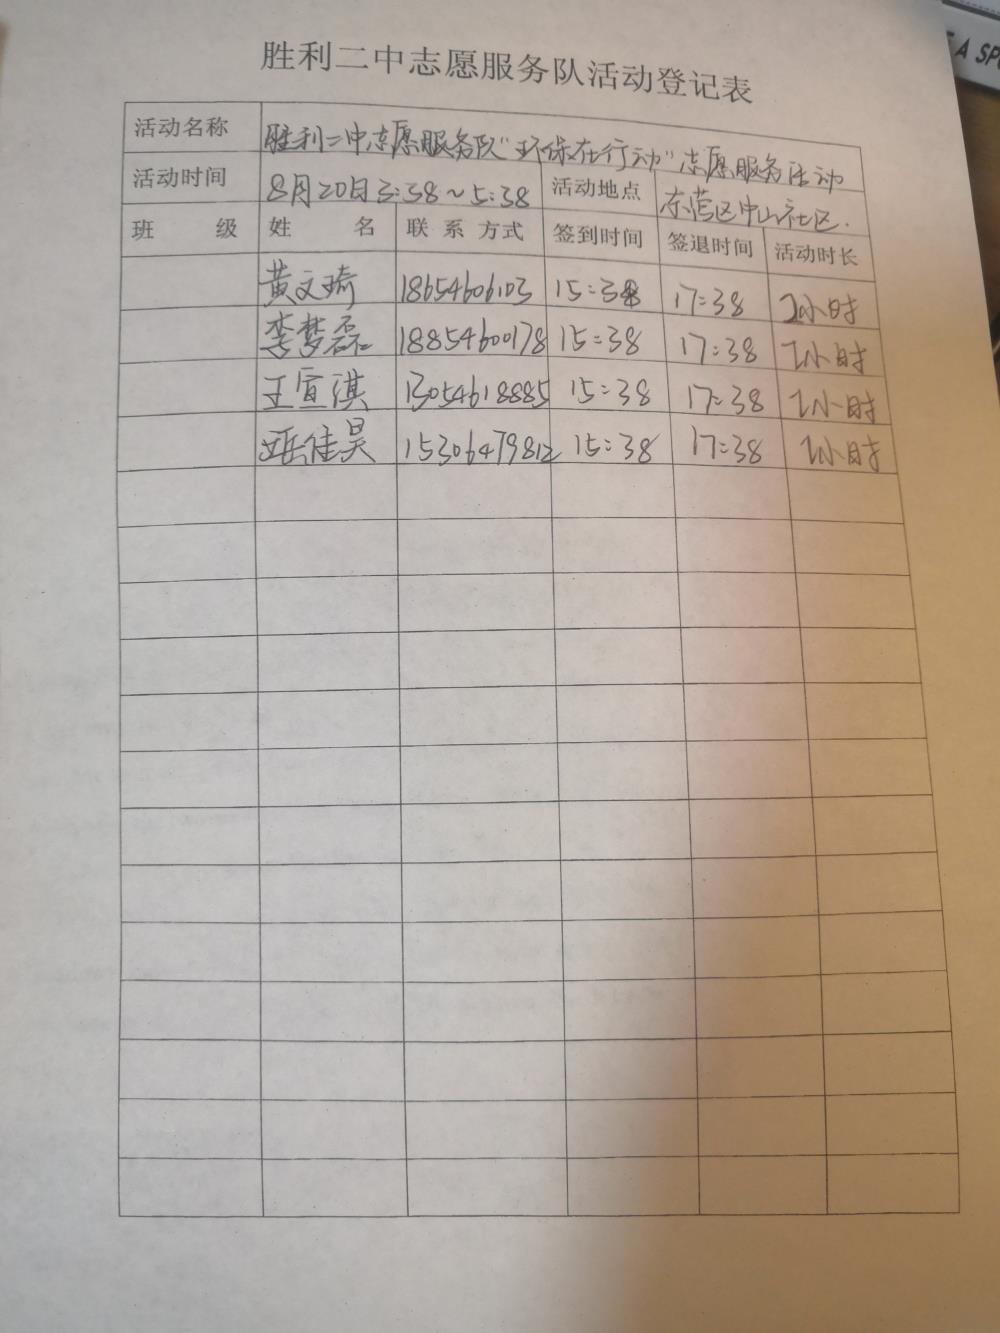 胜利二中志愿服务队活动登记表
活动名称 胜利二中志愿服务队"环保在行动"志愿服务活动
活动时间 8月20日3:38~5:38 活动地点 东营区中山社区.
班 级 姓 名 联 系 方式 签到时间 签退时间 活动时长
黄文琦 18654606103 15:38 17:38 2小时
李梦磊 18854600178 15:38 17:38 2小时
王宣淇 13054618885 15:38 17:38 2小时
岳佳昊 15306479812 15:38 17:38 2小时
A SPO